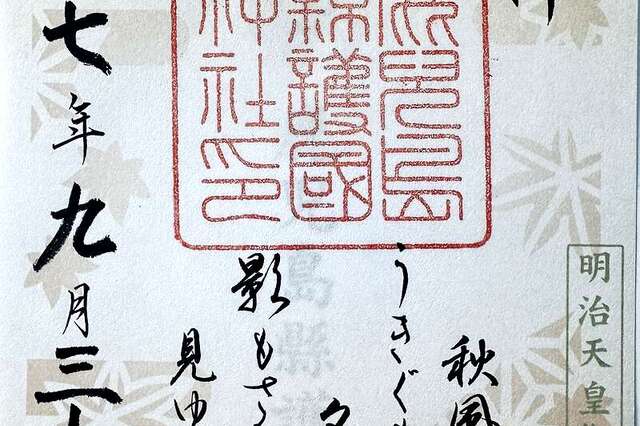 明治天皇
秋風
うきぐ
影もさ
見ゆ
児島
縣護國
神社印
島縣
七年九月三